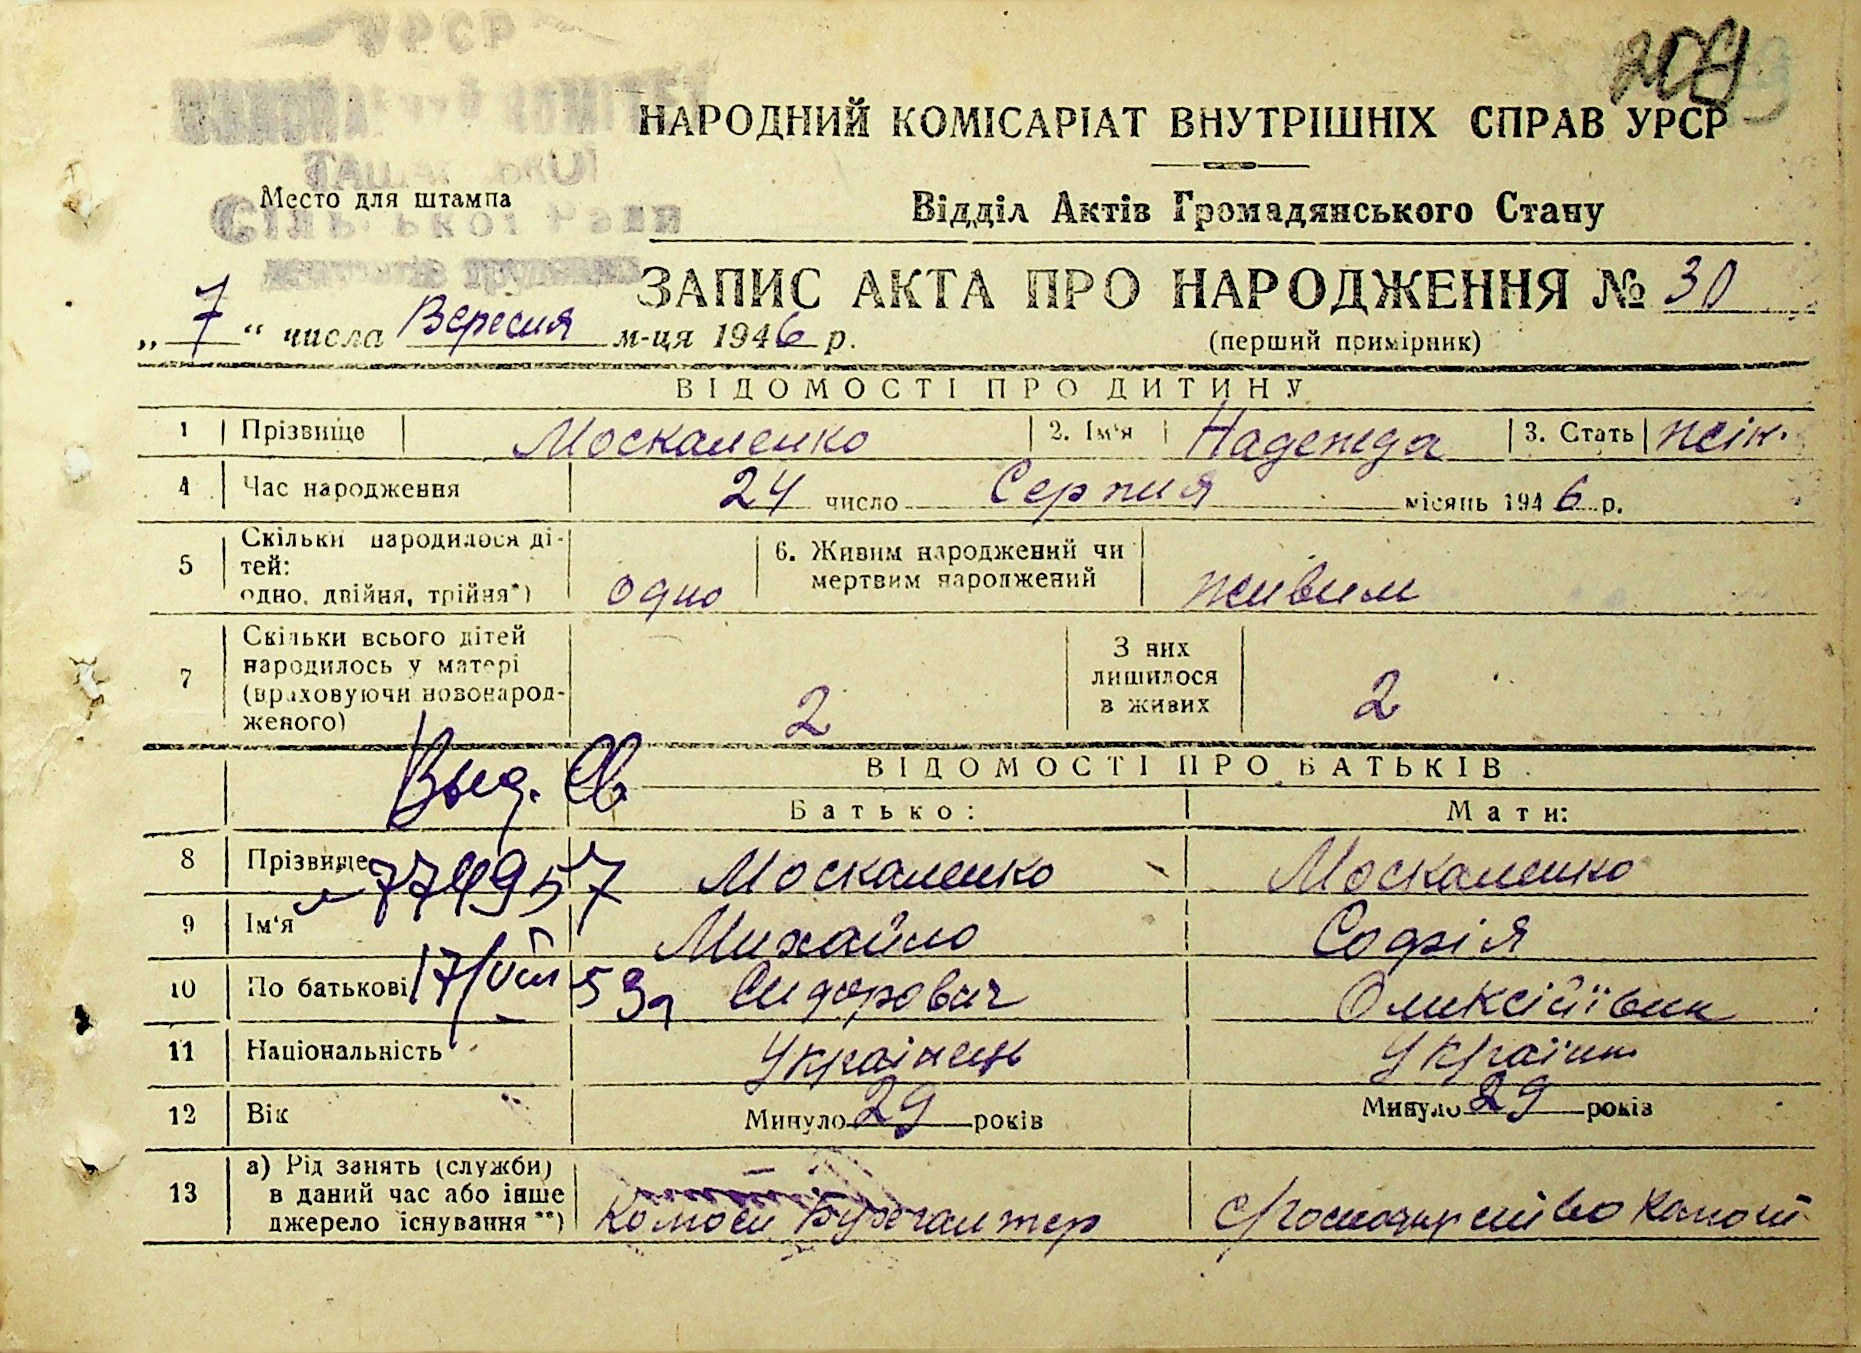 209
УРСР
НАРОДНИЙ КОМІСАРІАТ ВНУТРІШНІХ СПРАВ УРСР
Место для штампа
Відділ Актів Громадянського Стану
ЗАПИС АКТА ПРО НАРОДЖЕННЯ № 30
„ 7 “ числа Вересня м-ця 1946 р.
(перший примірник)
ВІДОМОСТІ ПРО ДИТИНУ
1 Прізвище Москаленко 2. Ім'я Надежда 3. Стать жін.
4 Час народження 24 число Серпня місяць 1946 р.
5 Скільки народилося ді-
тей:
одно, двійня, трійня*) одно
6. Живим народжений чи
мертвим народжений живим
7 Скільки всього дітей
народилось у матері
(враховуючи новонарод-
женого) 2
З них
лишилося
в живих 2
Выд. Св
ВІДОМОСТІ ПРО БАТЬКІВ
Батько: Мати:
8 Прізвище Москаленко Москаленко
9 Ім'я Михайло Софія
10 По батькові 17/VIII 53 Сидорович Олексіївна
11 Національність Українець Україн
12 Вік Минуло 29 років Минуло 29 років
13 а) Рід занять (служби)
в даний час або інше
джерело існування**) Бухгалтер